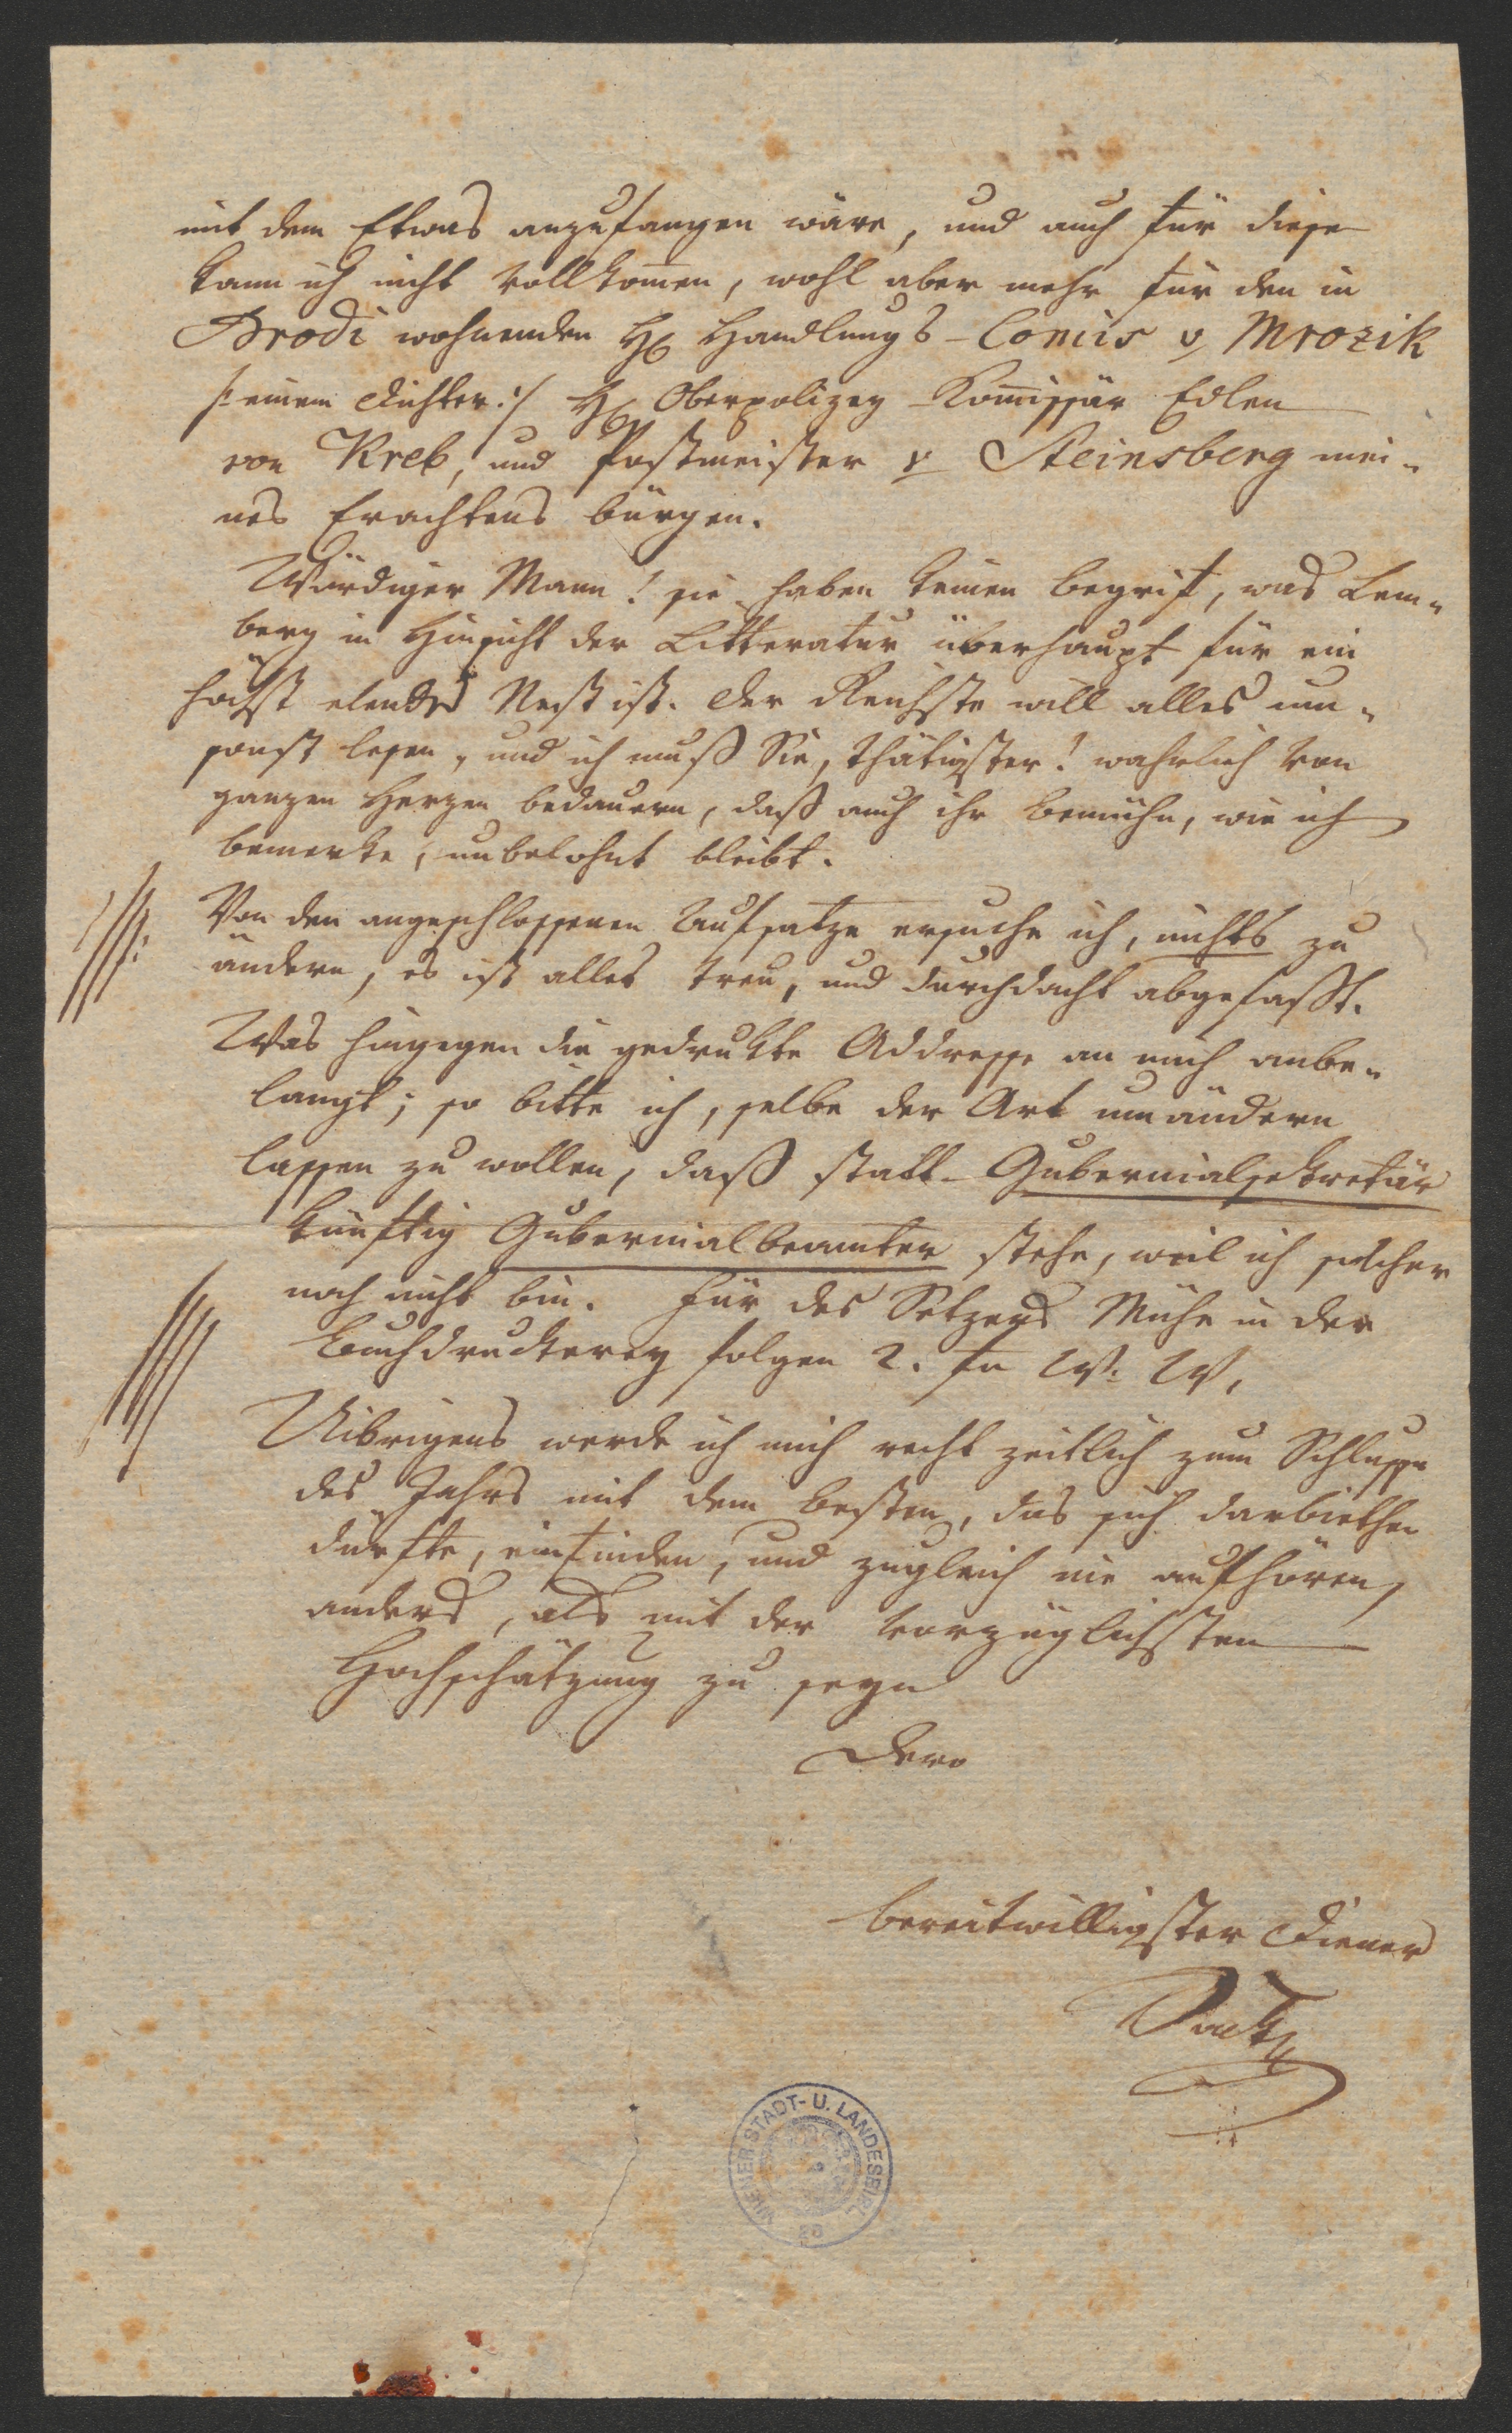 mit dem Etwas anzufangen wäre, und auch für diese
kann ich nicht vollkom̅en, wohl aber mehr für den in
Brodi wohnenden H Handlungs-Com̅is v Mrozik
/: einem Dichter :/ H Oberpolizey-Kom̅issär Edlen
von Kreb, und Postmeister v Steinsberg mei-
nes Erachtens bürgen.
Würdiger Mann! sie haben keinen begrif, was Lem-
berg in Hinsicht der Litteratur überhaupt für ein
höchst elendes Nest ist. Der Reichste will alles um-
sonst lesen, und ich muß Sie, thätigster! wahrlich von
ganzen Herzen bedauern, daß auch ihr bemühn, wie ich
bemerke, unbelohnt bleibt.
Von den angeschlossenen Aufsatze ersuche ich, nichts zu
ändern, es ist alles treu, und durchdacht abgefaßt.
Was hingegen die gedrukte Addresse an mich anbe-
langt; so bitte ich, selbe der Art umändern
lassen zu wollen, daß statt Gubernialsekretär
künftig Gubernialbeamter stehe, weil ich solcher
noch nicht bin. Für des Setzers Mühe in der
Buchdruckerey folgen 2. fn W: W,
Uibrigens werde ich mich recht zeitlich zum Schlusse
des Jahrs mit dem besten, das sich darbiethen
dürfte, einfinden, und zugleich nie aufhören,
anders, als mit der vorzüglichsten
Hochschätzung zu seyn
Dero
bereitwilligster Diener
WIENER STADT- U. LANDESBIBL.